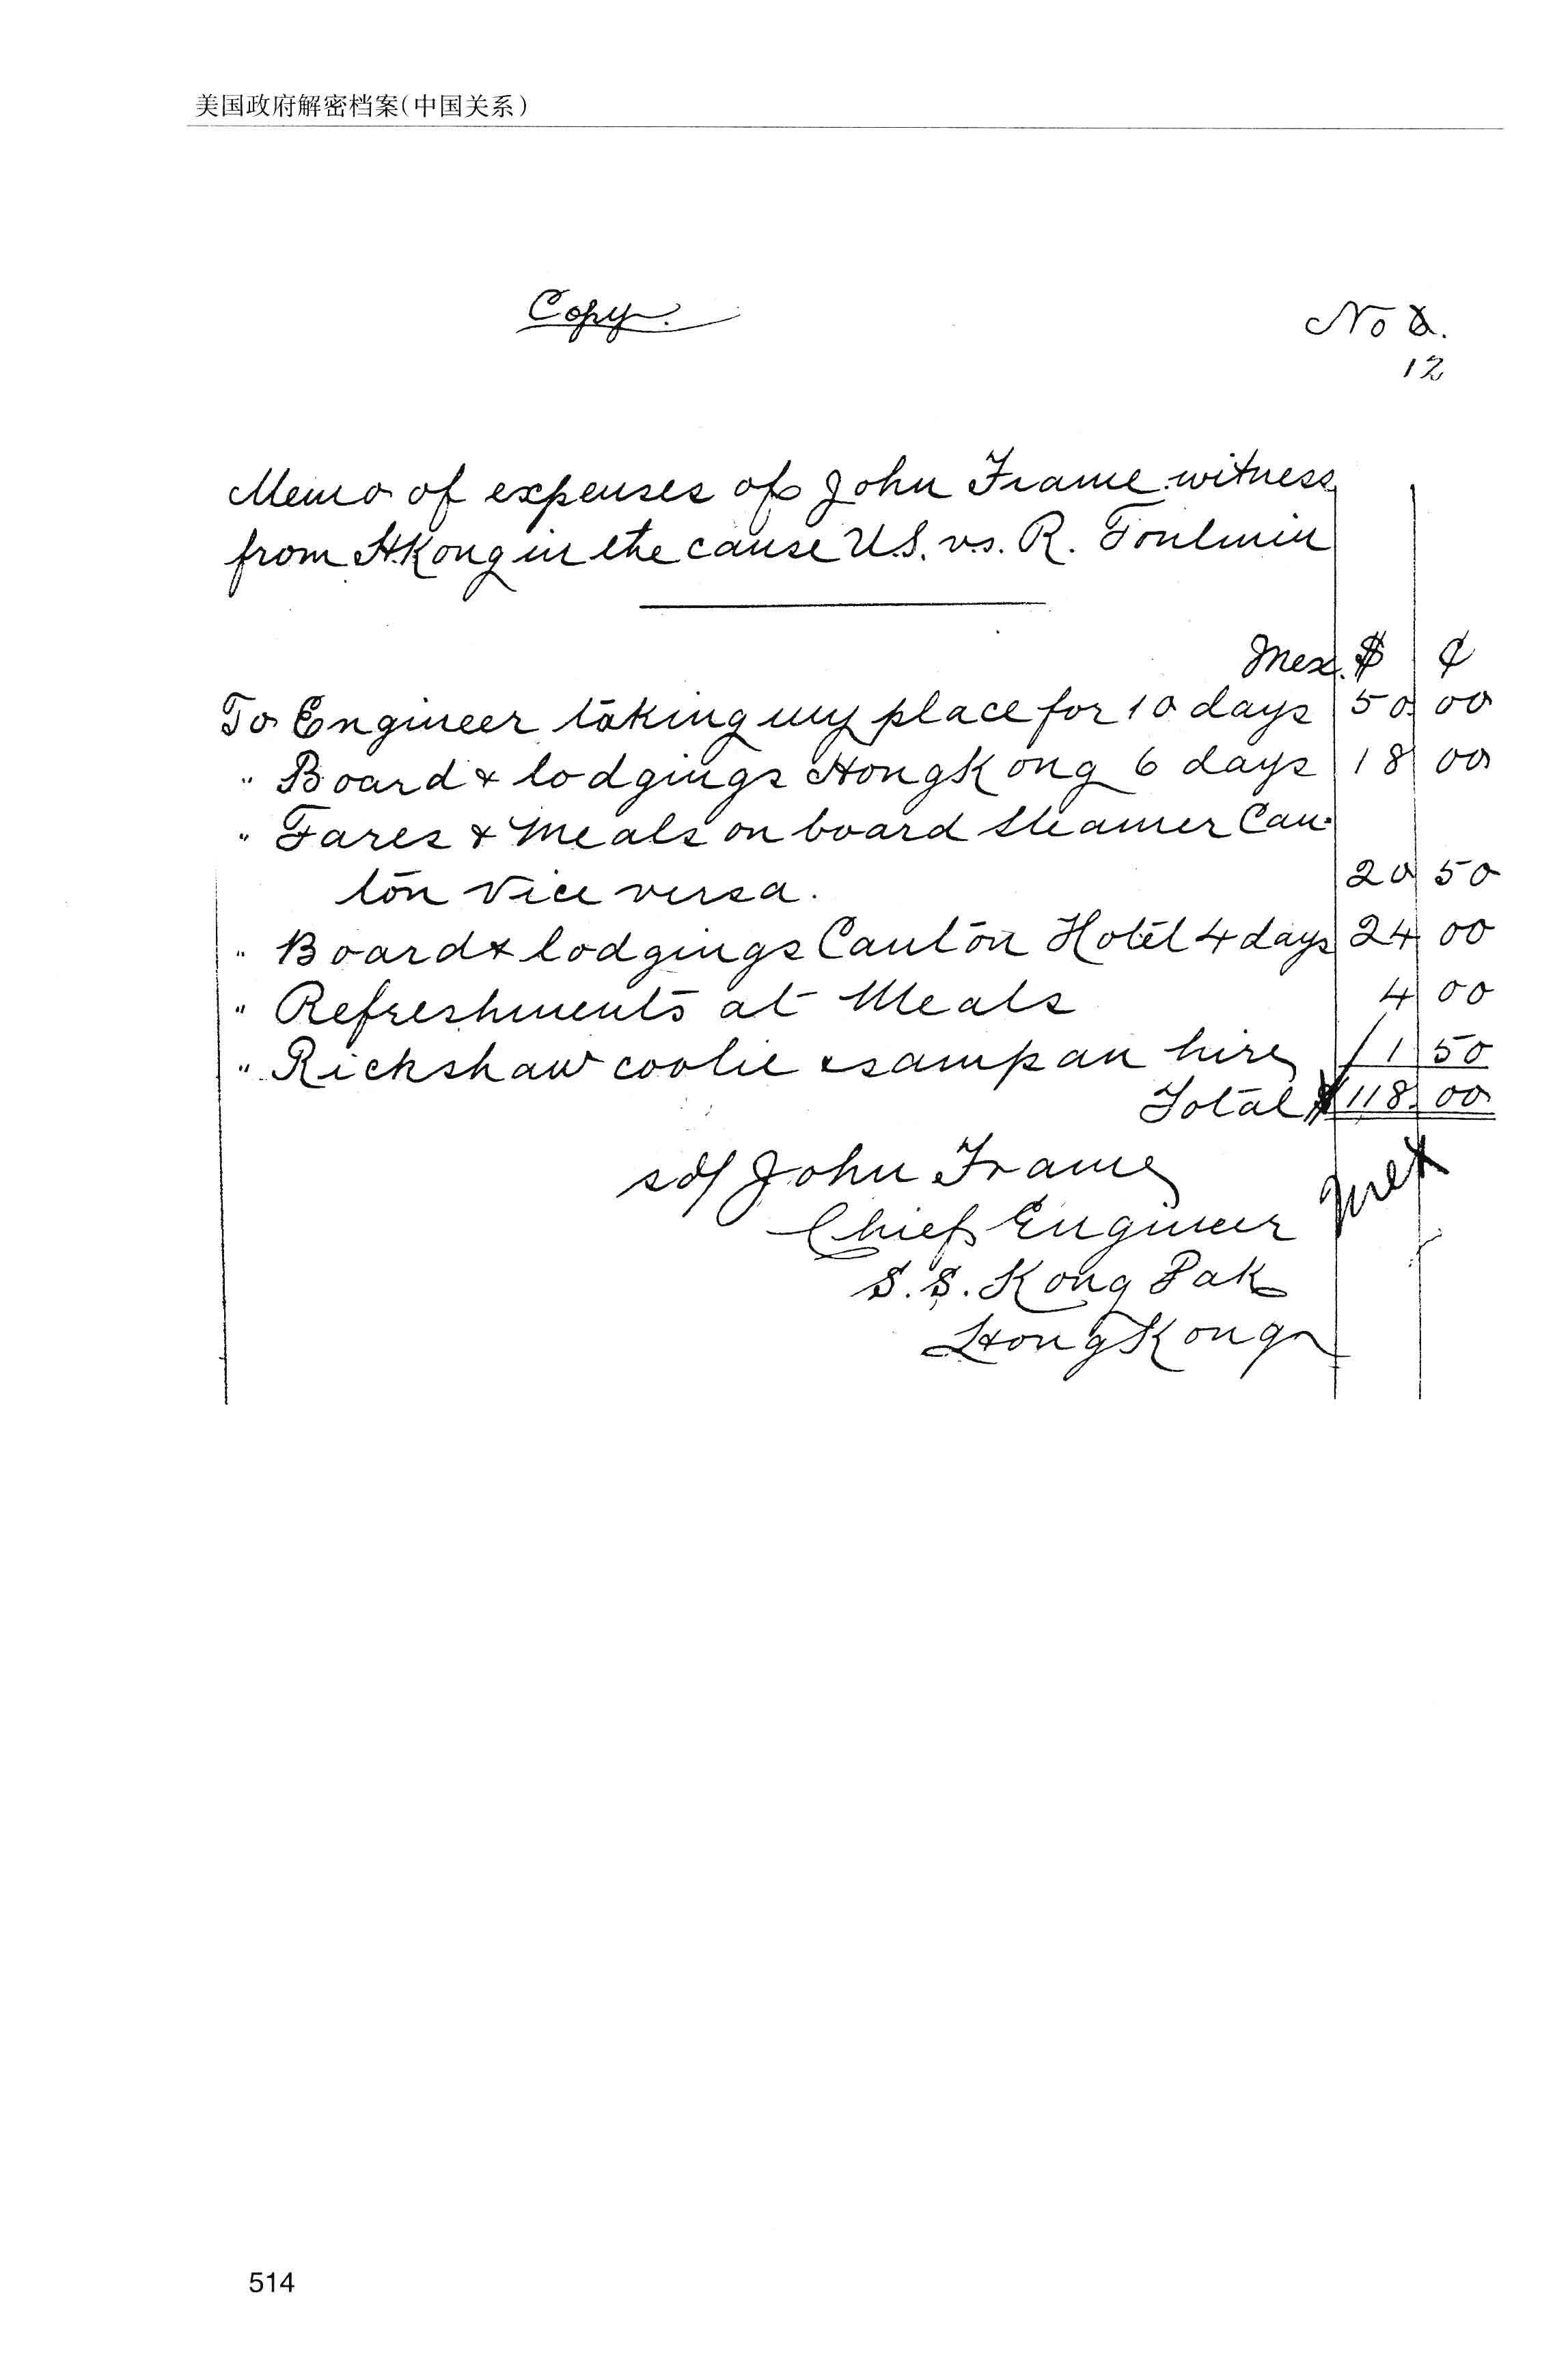 美国政府解密档案(中国关系)
Copy.
No
12
Memo of expenses of John Frame witness
from H.Kong in the cause U.S. vs. R. Toulmin
Mex. $ ¢
To Engineer taking my place for 10 days 50 00
" Board & lodgings HongKong 6 days 18 00
" Fares & Meals on board steamer Can-
ton vice versa. 20 50
" Board & lodgings Canton Hotel 4 days 24 00
" Refreshments at Meals 4 00
" Rickshaw coolie & sampan hire 1 50
Total $118.00
sd/ John Frame
Mex
Chief Engineer
S.S. Kong Pak
HongKong
514